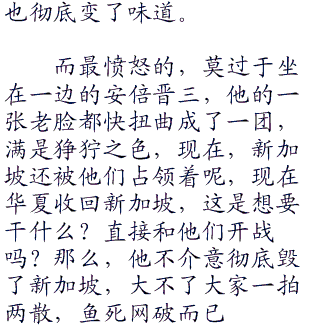 也彻底变了味道。
而最愤怒的，莫过于坐
在一边的安倍晋三，他的一
张老脸都快扭曲成了一团，
满是狰狞之色，现在，新加
坡还被他们占领着呢，现在
华夏收回新加坡，这是想要
干什么？直接和他们开战
吗？那么，他不介意彻底毁
了新加坡，大不了大家一拍
两散，鱼死网破而已